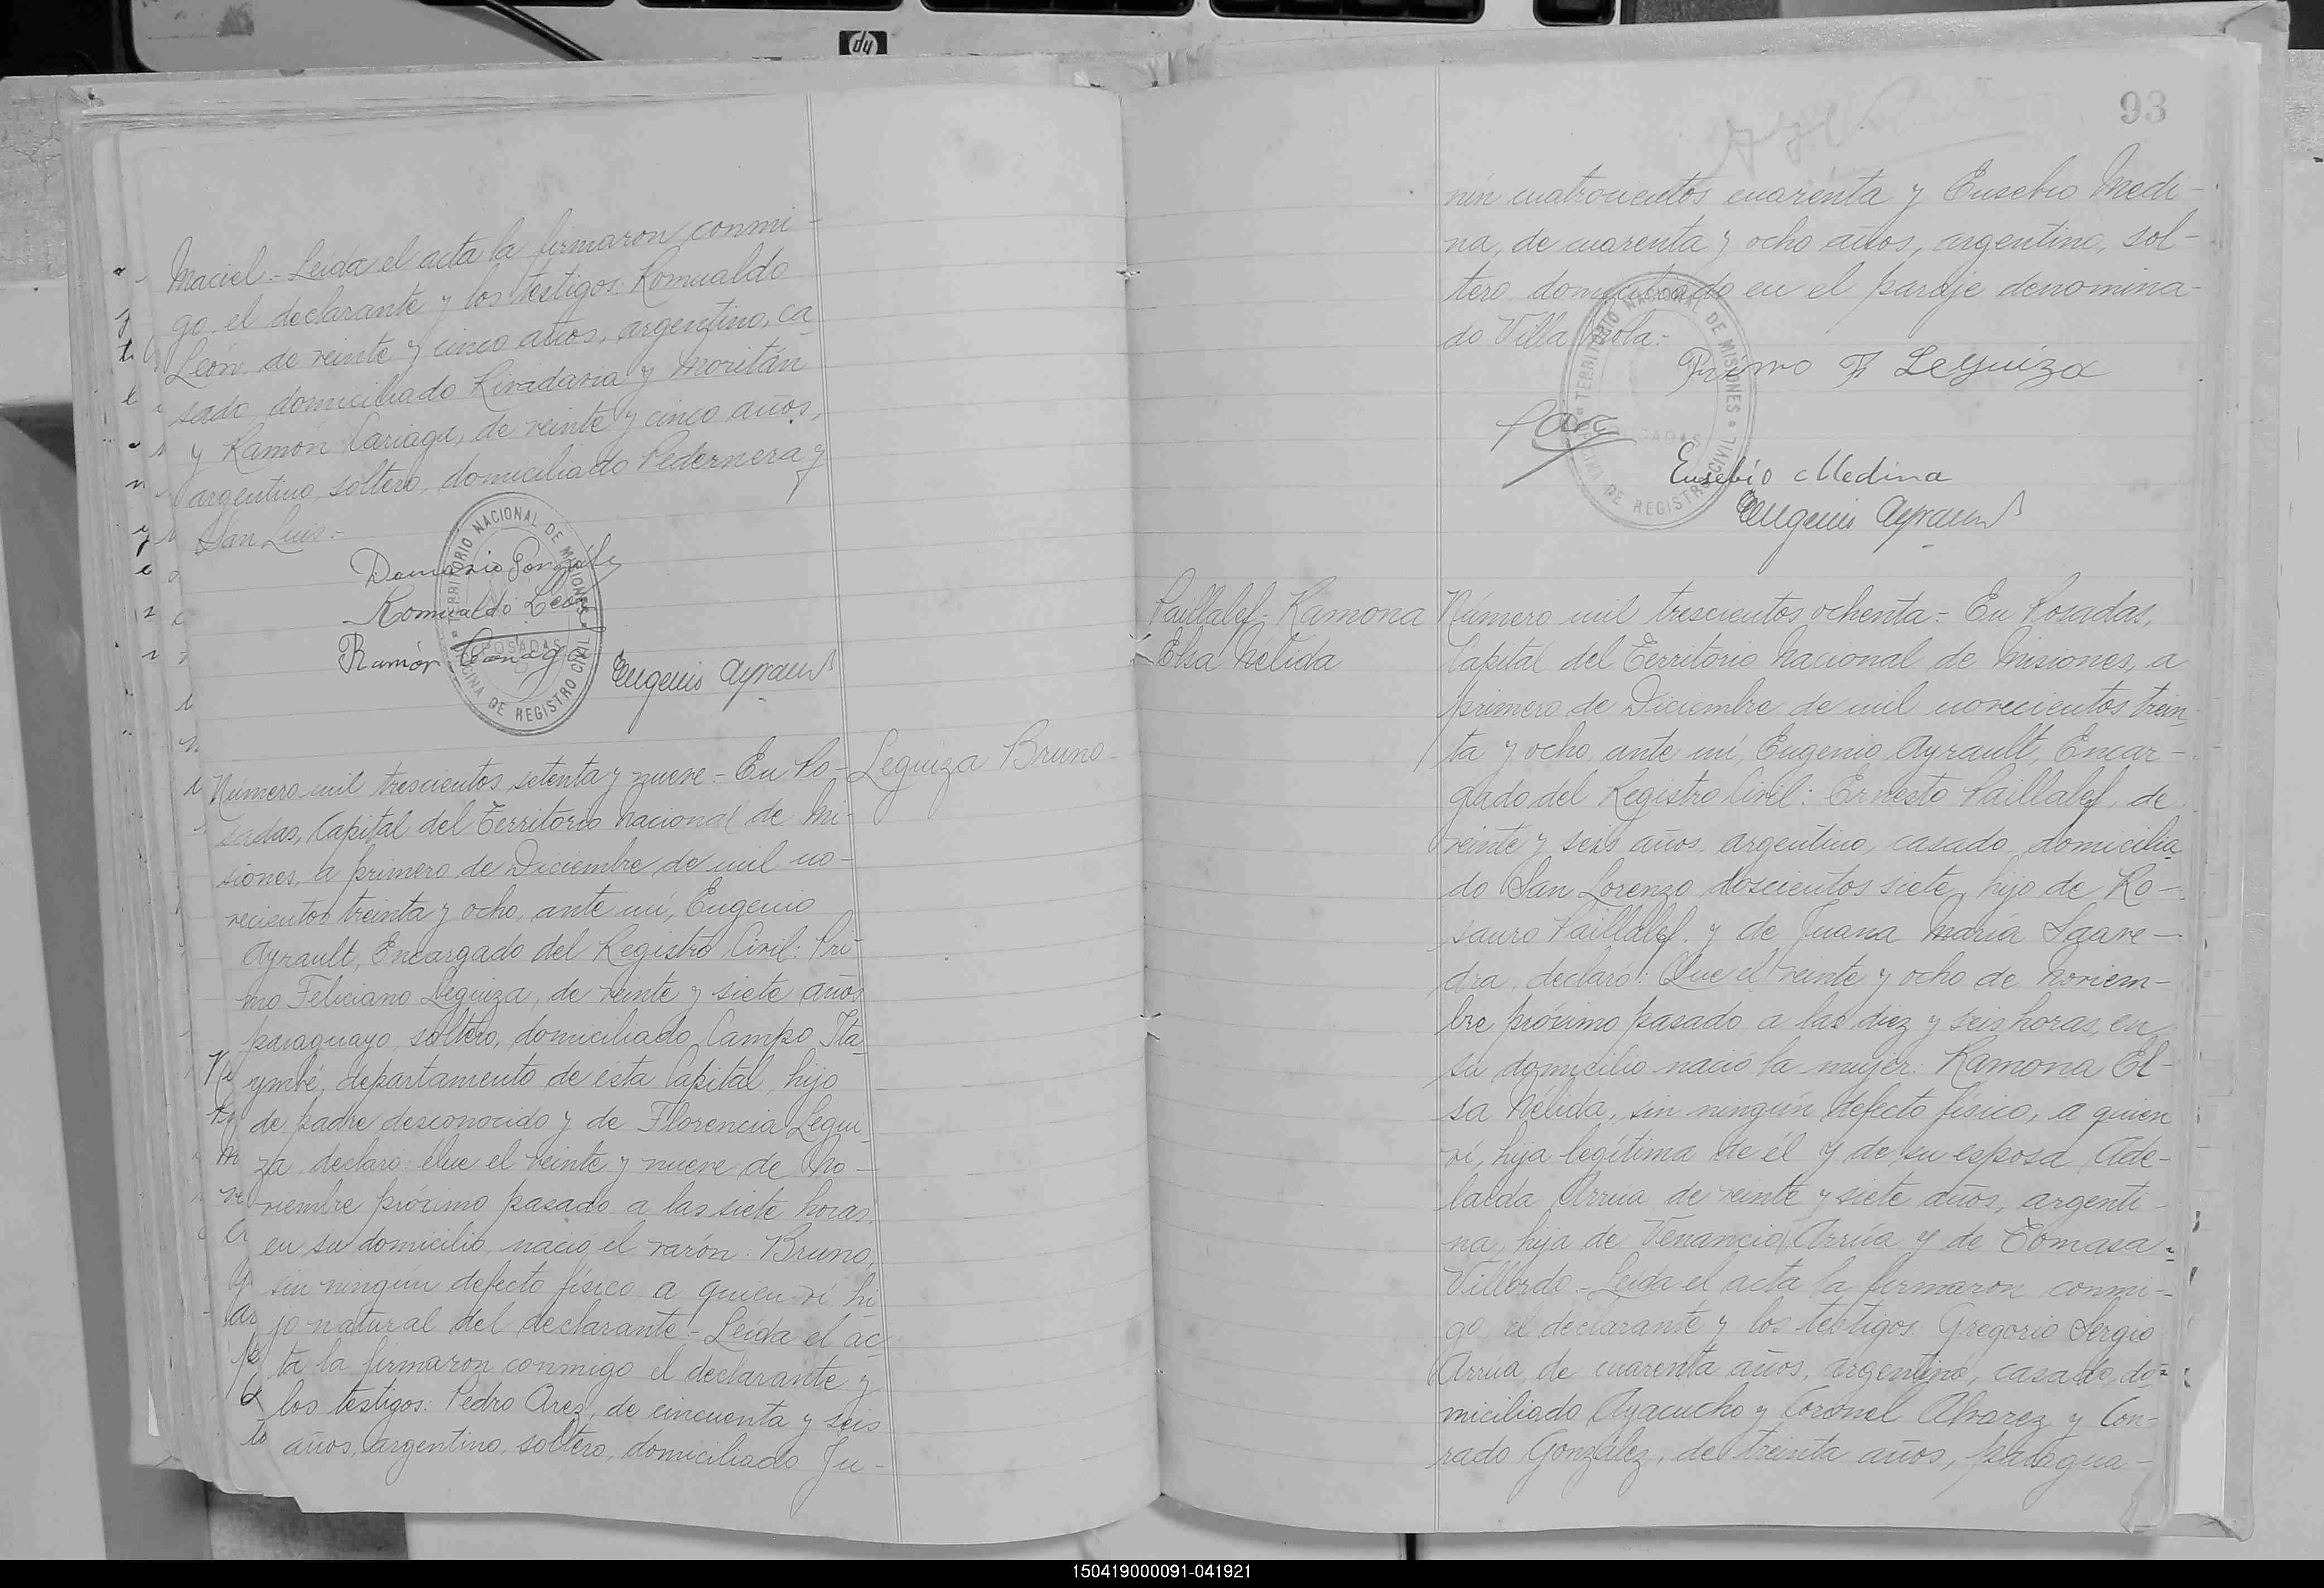 Maciel.- Leída el acta la firmaron conmi-
go, el declarante y los testigos: Romualdo
León, de veinte y cinco años, argentino, ca
sado, domiciliado Rivadavia y Moritán
y Ramón Cariaga, de veinte y cinco años,
argentino, soltero, domiciliado Pedernera y
San Luis.-
Romualdo León
Ramón
Eugenio Ayrault
TERRITORIO NACIONAL DE MISIONES
POSADAS
OFICINA DE REGISTRO CIVIL
Leguiza Bruno
Número mil trescientos setenta y nueve.- En Po-
sadas, Capital del Territorio Nacional de Mi-
siones, a primero de Diciembre de mil no-
vecientos treinta y ocho, ante mí, Eugenio
Ayrault, Encargado del Registro Civil: Pri-
mo Feliciano Leguiza, de veinte y siete años
paraguayo, soltero, domiciliado Campo Ita
ymbé, departamento de ésta Capital, hijo
de padre desconocido y de Florencia Legui
za, declaro: Que el veinte y nueve de No-
viembre próximo pasado a las siete horas,
en su domicilio, nació el varón: Bruno,
sin ningún defecto físico a quien ví hi
jo natural del declarante.- Leída el ac
ta la firmaron conmigo el declarante y
los testigos: Pedro Arez, de cincuenta y seis
años, argentino, soltero, domiciliado Ju-
93
nín cuatrocientos cuarenta y Eusebio Medi-
na, de cuarenta y ocho años, argentino, sol-
tero, domiciliado en el paraje denomina-
do Villa Mola.-
Primo F Leguiza
Eusebio Medina
Eugenio Ayrault
TERRITORIO NACIONAL DE MISIONES
POSADAS
OFICINA DE REGISTRO CIVIL
Paillalef- Ramona
Elsa Nélida
Número mil trescientos ochenta.- En Posadas,
Capital del Territorio Nacional de Misiones, a
primero de Diciembre de mil novecientos trein
ta y ocho ante mí, Eugenio Ayrault, Encar-
gado del Registro Civil: Ernesto Paillalef, de
veinte y seis años, argentino, casado, domicilia
do San Lorenzo doscientos siete, hijo de Ro-
sauro Paillalef y de Juana María Saave-
dra, declaró: Que el veinte y ocho de Noviem-
bre próximo pasado a las diez y seis horas, en
su domicilio nació la mujer: Ramona El-
sa Nélida, sin ningún defecto físico, a quien
ví, hija legítima de él y de su esposa Ade-
laida Arrúa de veinte y siete años, argenti-
na, hija de Venancio Arrúa y de Tomasa
Villordo.- Leída el acta la firmaron conmi-
go el declarante y los testigos Gregorio Sergio
Arrúa de cuarenta años, argentino, casado, do-
miciliado Ayacucho y Coronel Alvarez y Con-
rado González, de treinta años, paragua-
150419000091-041921